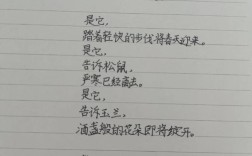 是它，
踏着轻快的步伐将春天迎来。
是它，
告诉松鼠，
严寒已经离去。
是它，
告诉玉兰，
酒盏般的花朵即将绽开。